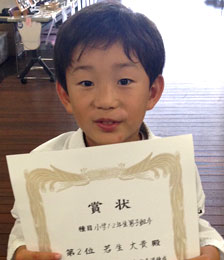 賞状
種目 小学1・2年生男子組手
第2位 若生大貴殿